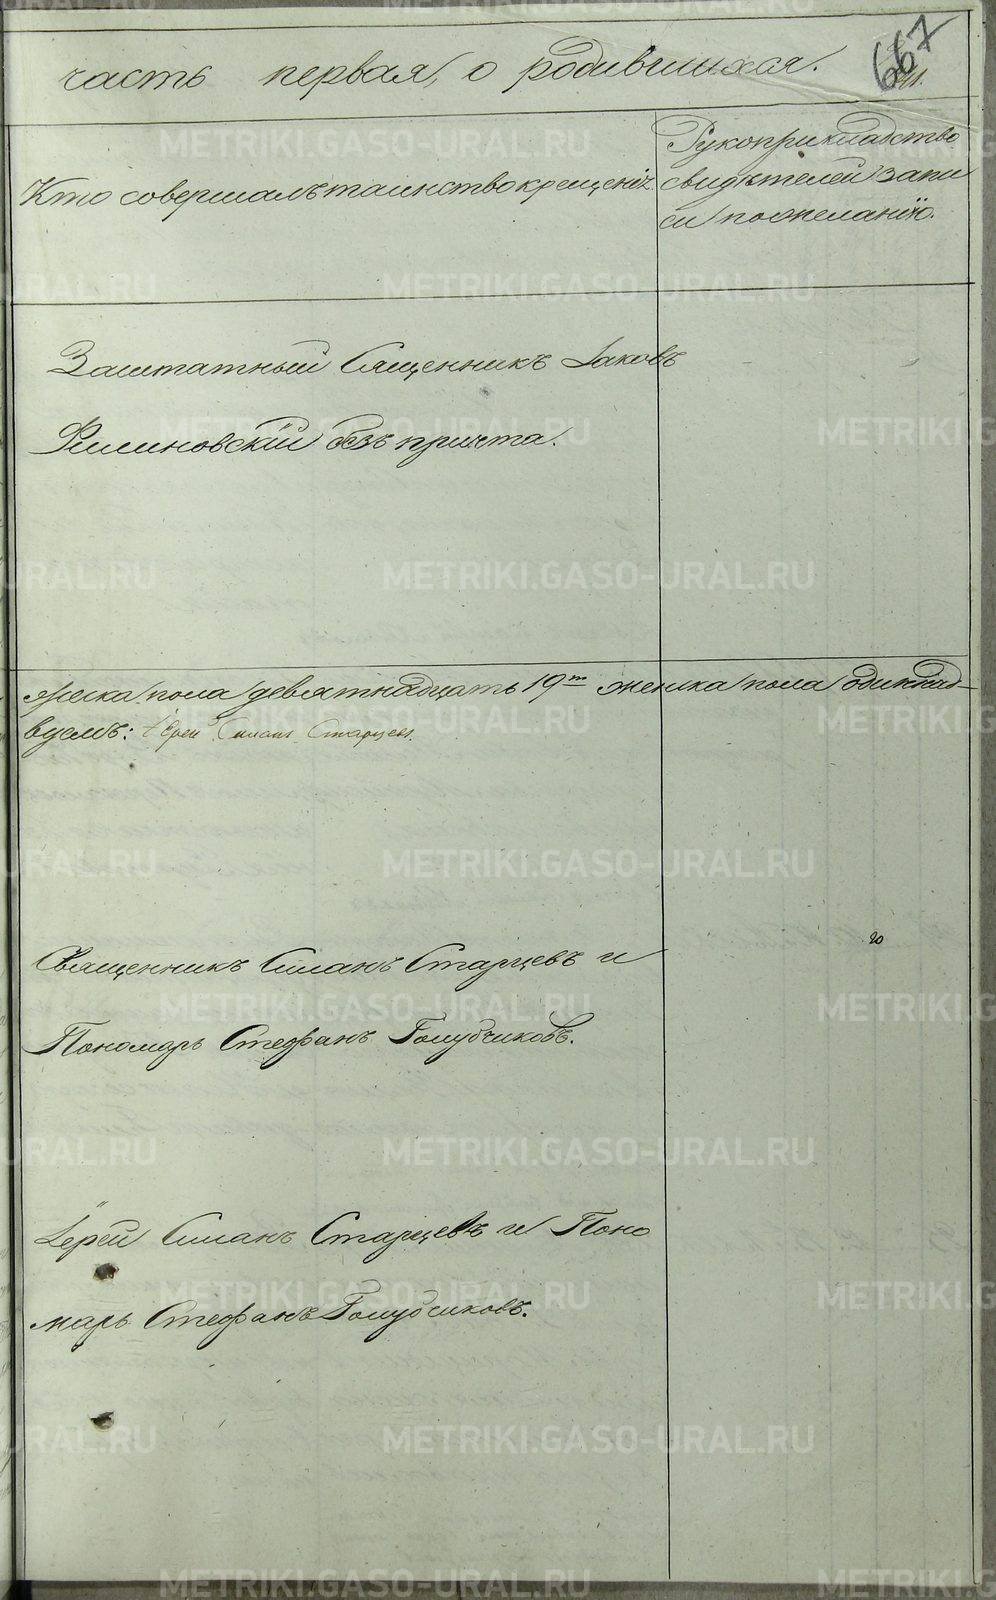 667
часть первая, о родившихся.
Кто совершалъ таинство крещенія.
Рукоприкладство
свидѣтелей запи
си по желанію.
Заштатный Сященникъ Іаковъ
безъ причта.
мужеска пола девятнадцать 19ть женска пола одиннад-
Іерей Симанъ Старцевъ.
Священникъ Симанъ Старцевъ и
Пономарь Стефанъ Голубчиковъ.
Іерей Симанъ Старцевъ и Поно
марь Стефанъ Голубчиковъ.
METRIKI.GASO-URAL.RU